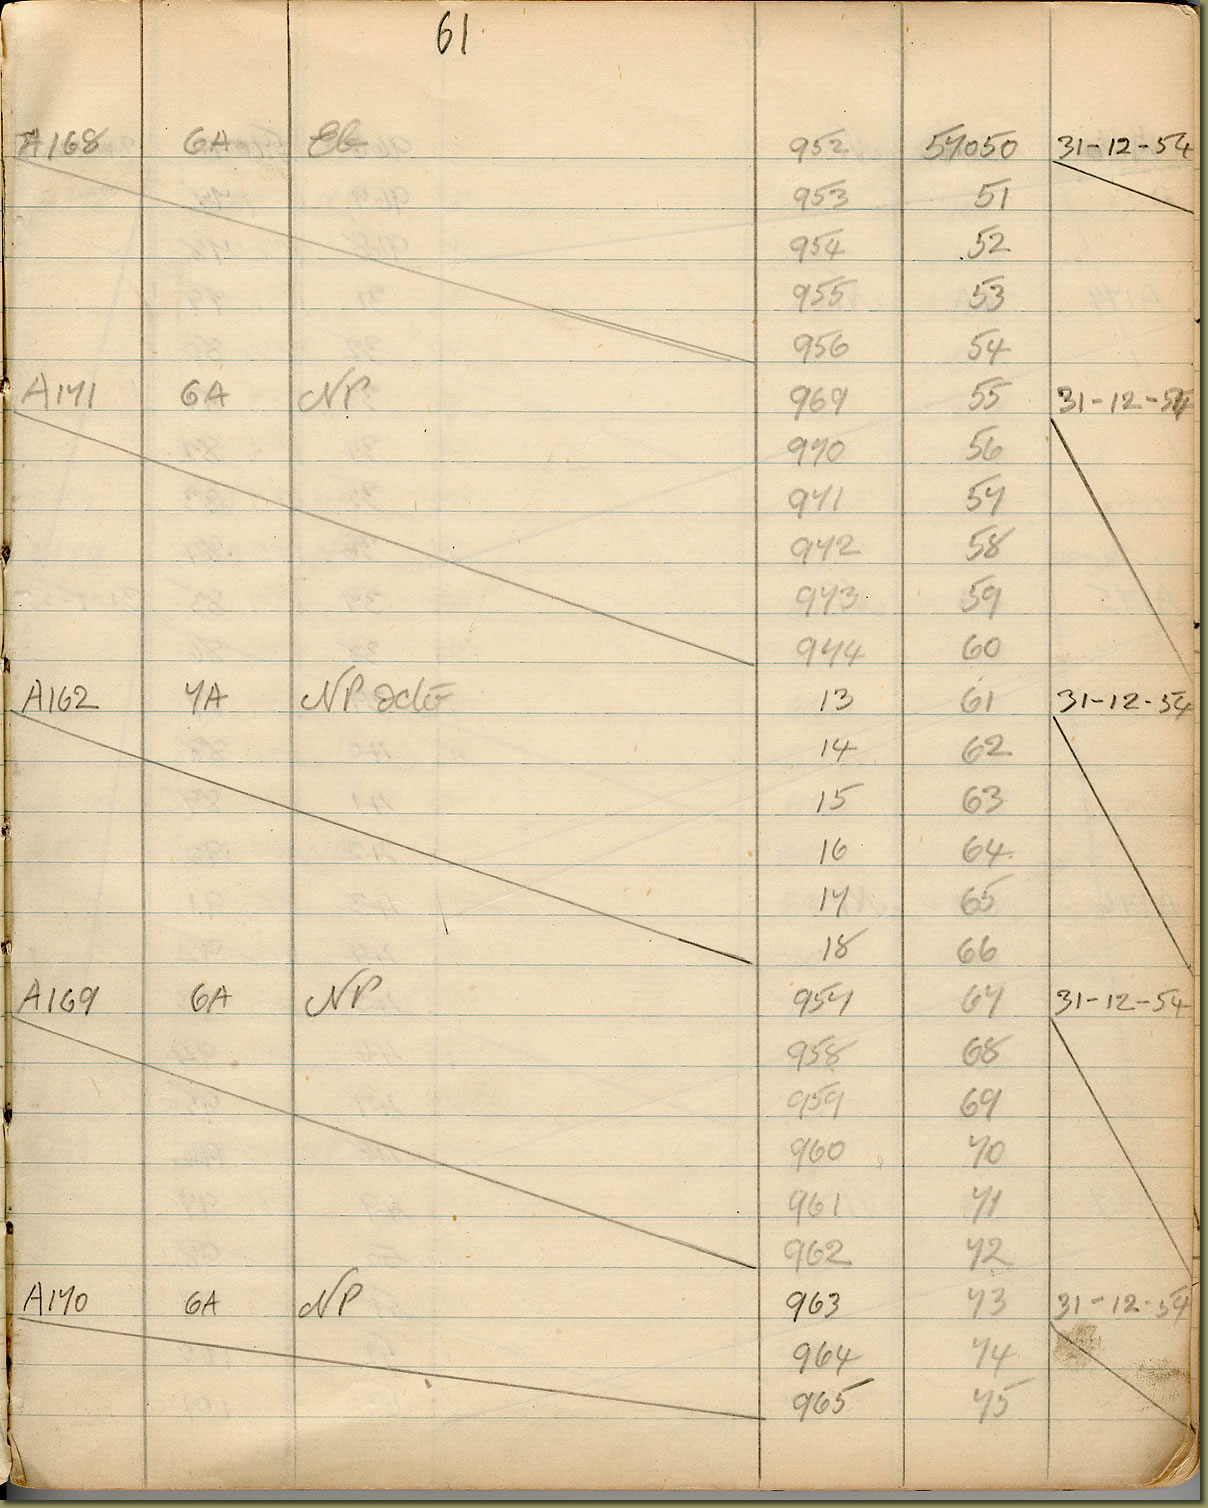 61
A168 6A 952 57050 31-12-54
953 51
954 52
955 53
956 54
A171 6A NP 969 55 31-12-54
970 56
971 57
972 58
973 59
974 60
A162 7A NP 13 61 31-12-54
14 62
15 63
16 64
17 65
18 66
A169 6A NP 957 67 31-12-54
958 68
959 69
960 70
961 71
962 72
A170 6A NP 963 73 31-12-54
964 74
965 75